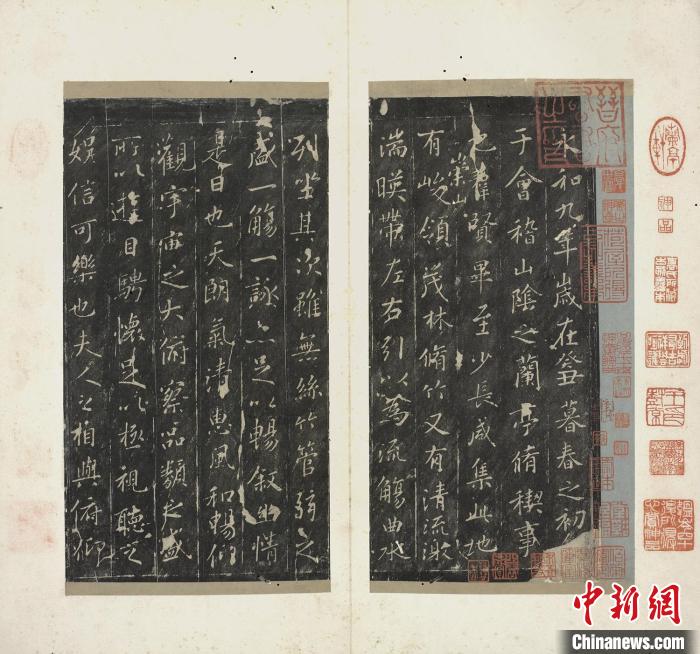 永和九年歲在癸丑暮春之初
于會稽山陰之蘭亭脩稧事
也羣賢畢至少長咸集此地
崇山
有峻領茂林脩竹又有清流激
湍暎帶左右引以為流觴曲水
列坐其次雖無絲竹管弦之
盛一觴一詠亦足以暢叙幽情
是日也天朗氣清惠風和暢仰
觀宇宙之大俯察品類之盛
所以遊目騁懷足以極視聽之
娛信可樂也夫人之相與俯仰
中新网
Chinanews.com